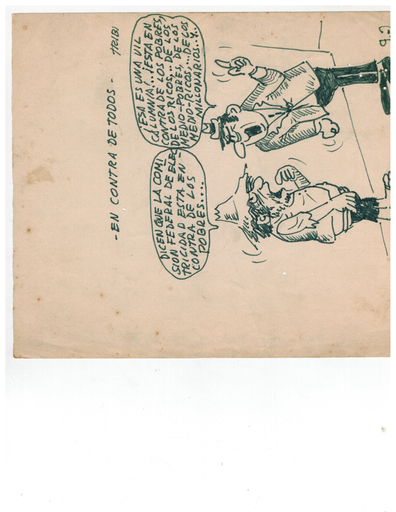 -EN CONTRA DE TODOS-
DICEN QUE LA COMI
SION FEDERAL DE ELEC
TRICIDAD ESTA EN
CONTRA DE LOS
POBRES....
ESA ES UNA VIL
CALUMNIA...! ESTA EN
CONTRA DE LOS POBRES,
DE LOS RICOS,... DE LOS
MEDIO-POBRES, DE LOS
MEDIO-RICOS,... DE LOS
MILLONARIOS.Y..